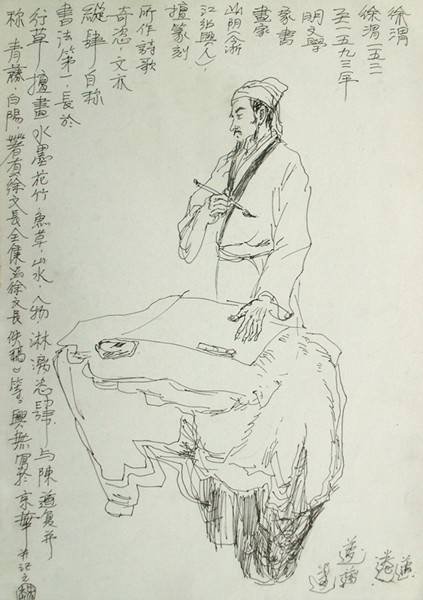 徐渭
徐渭一五二一
至一五九三年
明文學
家書
畫家
山陰今浙
江紹興人，
擅篆刻
所作詩歌
奇恣，文亦
縱肆，自稱
書法第一，長於
行草，擅畫水墨花竹，魚草，山水，人物，淋漓恣肆，与陳道复并
稱青藤，白陽，著有徐文長全集 徐文長佚稿 等。興 寫於京華 并记之